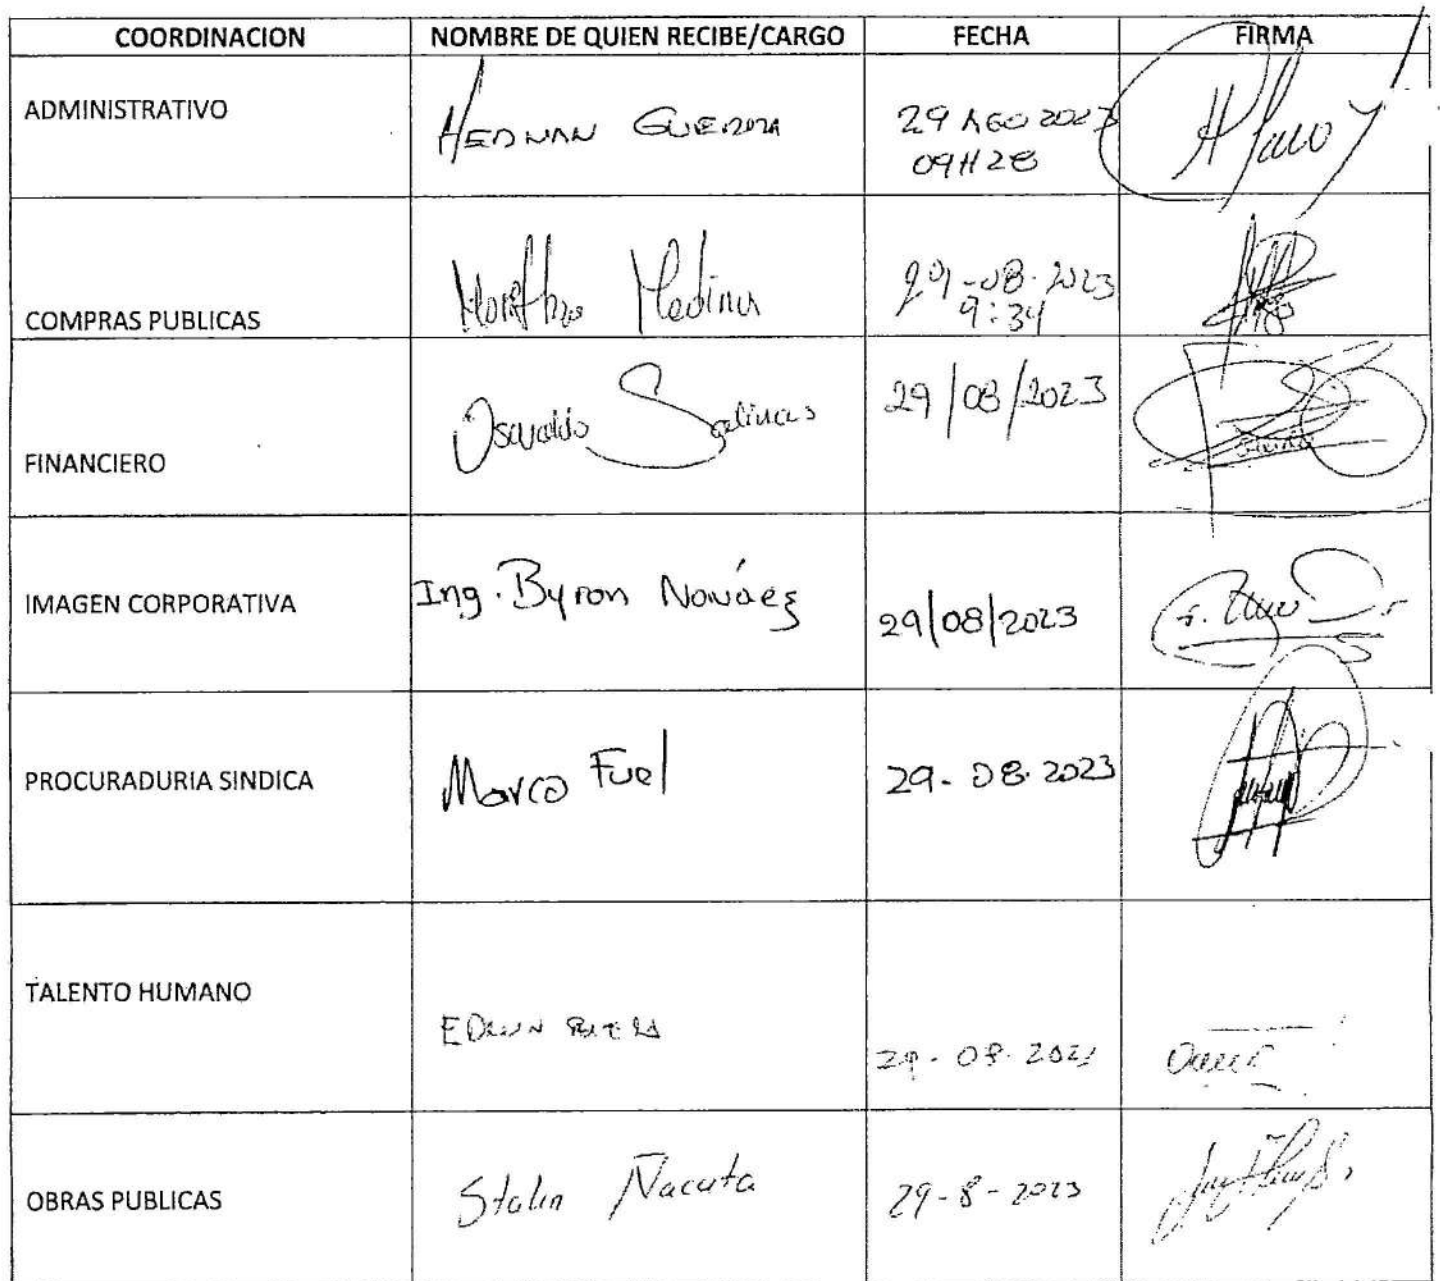 COORDINACION NOMBRE DE QUIEN RECIBE/CARGO FECHA FIRMA
ADMINISTRATIVO HERNAN GUERRA 29 AGO 2023
09H28
COMPRAS PUBLICAS Medina 29-08-2023
9:34
FINANCIERO Osvaldo Salinas 29/08/2023
IMAGEN CORPORATIVA Ing. Byron Narváez 29/08/2023
PROCURADURIA SINDICA Marco Fuel 29-08-2023
TALENTO HUMANO EDWIN 29-08-
OBRAS PUBLICAS Stalin Ñacata 29-8-2023